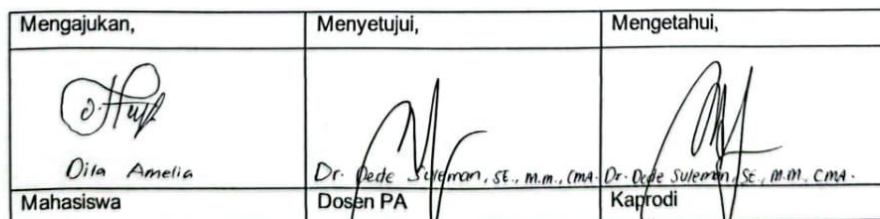 Mengajukan,
Menyetujui,
Mengetahui,
Dila Amelia
Dr. Dede Suleman, SE., M.M., CMA.
Dr. Dede Suleman, SE., M.M., CMA.
Mahasiswa
Dosen PA
Kaprodi